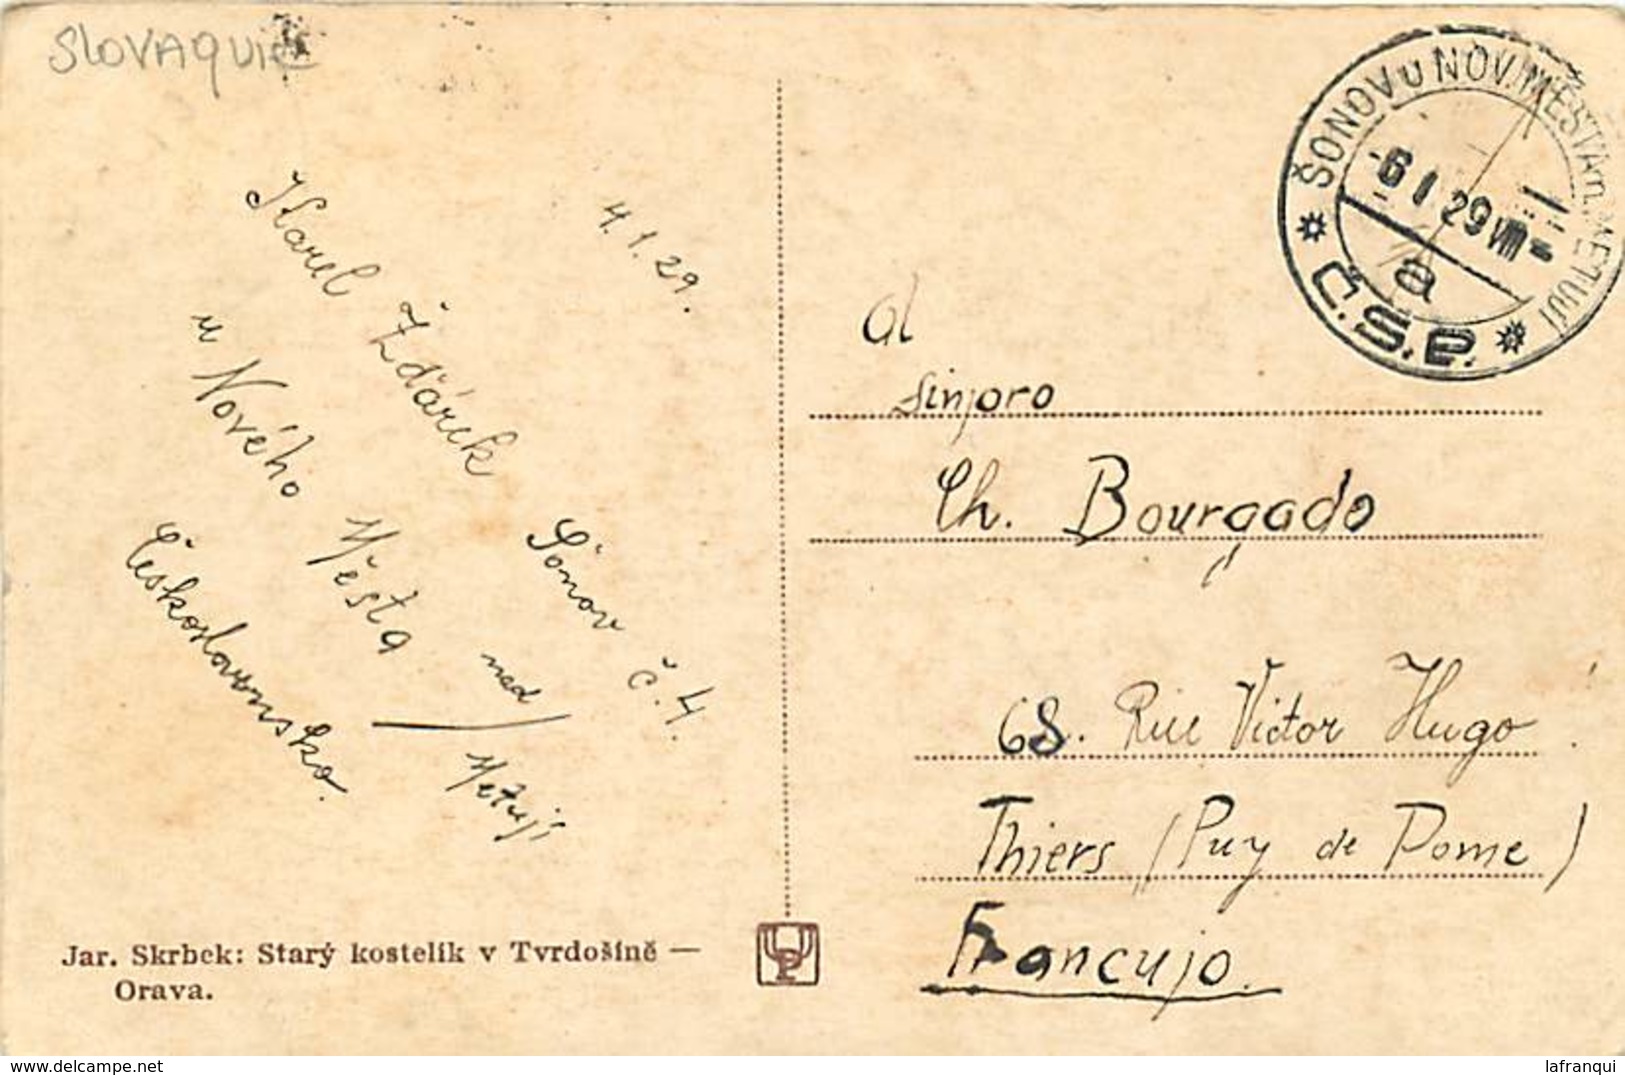 SLOVAQUIE
4.1.29.
Karel Žďárek
Šonov č.4
u Nového Města nad Metují
Československo.
Jar. Skrbek: Starý kostelík v Tvrdošíně —
Orava.
ŠONOV u NOV. MĚSTA n. METUJÍ
-6 I 29 VIII-
a
Č.S.P.
Al
sinjoro
Ch. Bourgado
68. Rue Victor Hugo
Thiers (Puy de Dome)
Francujo.
lafranqui
www.delcampe.net